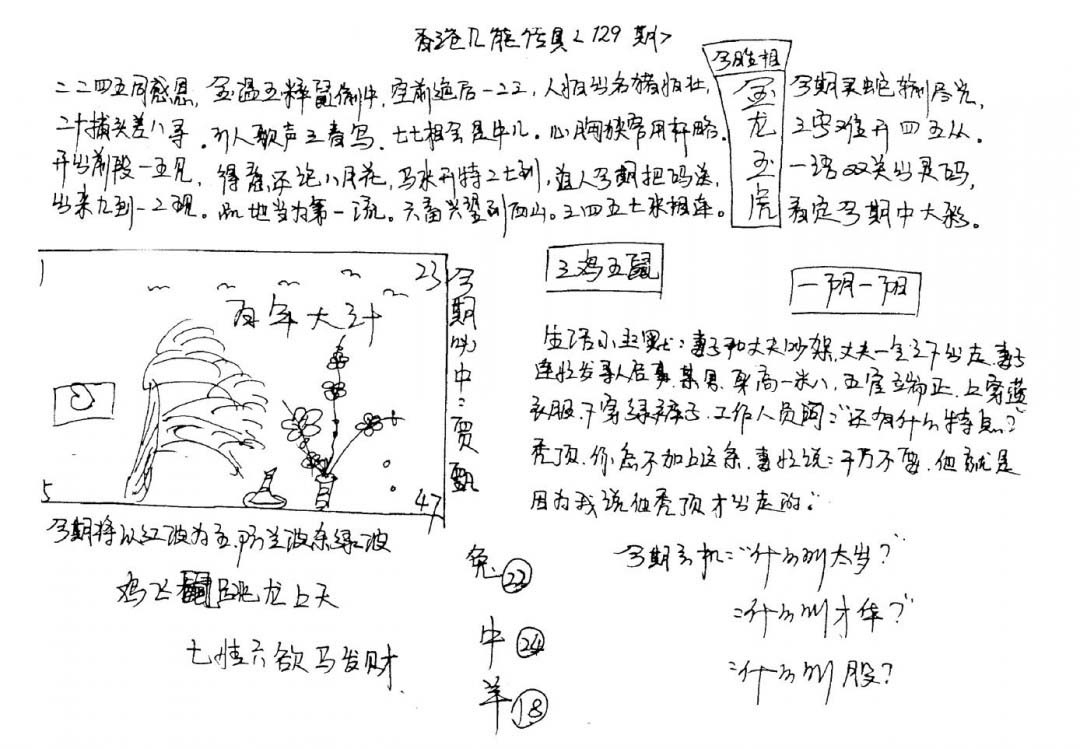 香港几能传真<129期>
今期生相
金龙玉虎
二二四五同感恩,金温五粹鼠倒中,空前绝后一22,人怕出名猪怕壮,
今期买蛇
二十摘头差八寻.引人歌声三春写.七七相会是中儿.心胸狭窄用杆略.
三字难开四五从.
开出前段一五见,得意还记八月花,马来开特二七到,道人今期把码送,
一语双关出灵码,
出来九到一二现.风地当为第一流.六畜兴望到西山.三四五七来报连。
看定今期中大彩。
1
23
百年大计
5
47
今期必中:贾甄
三鸡五鼠
一阴一阳
生活小幽默:妻子和丈夫吵架,丈夫一气之下出走.妻子
连忙发寻人启事.某男.身高一米八,五官端正.上穿蓝
衣服.下穿绿裤子.工作人员问:"还有什么特点?"
秃顶.你怎不加上这条.妻忙说:千万不要.他就是
因为我说他秃顶才出走的.
今期将以红波为主.防兰波杀绿波
鸡飞鼠跳龙上天
七情六欲马发财.
兔22
中24
羊18
今期玄机:"什么叫太岁?"
:什么叫才华?
:什么叫股?